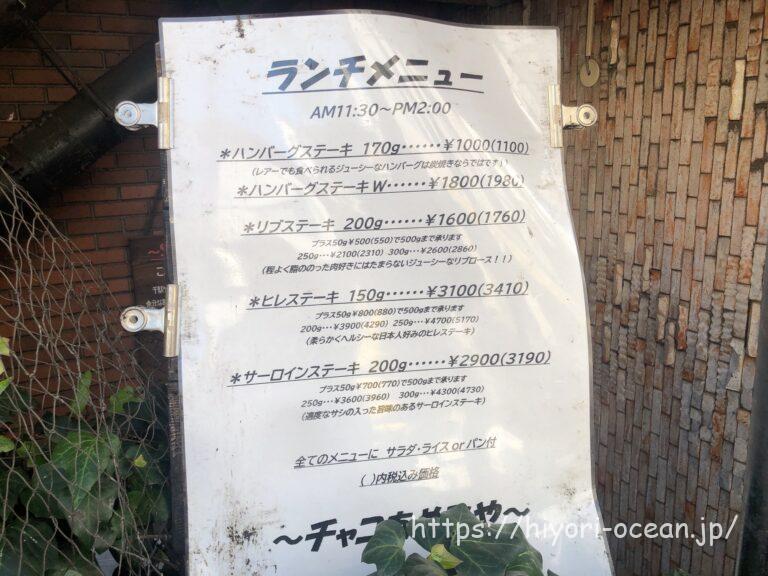 ランチメニュー
AM11:30～PM2:00
＊ハンバーグステーキ 170g‥‥‥¥1000(1100)
(レアーでも食べられるジューシーなハンバーグは炭焼きならではです！)
＊ハンバーグステーキW‥‥‥¥1800(1980)
＊リブステーキ 200g‥‥‥¥1600(1760)
プラス50g¥500(550)で500gまで承ります
250g…¥2100(2310) 300g…¥2600(2860)
(程よく脂ののった肉好きにはたまらないジューシーなリブロース！！)
＊ヒレステーキ 150g‥‥‥¥3100(3410)
プラス50g¥800(880)で500gまで承ります
200g…¥3900(4290) 250g…¥4700(5170)
(柔らかくヘルシーな日本人好みのヒレステーキ)
＊サーロインステーキ 200g‥‥‥¥2900(3190)
プラス50g¥700(770)で500gまで承ります
250g…¥3600(3960) 300g…¥4300(4730)
(適度なサシの入った旨味のあるサーロインステーキ)
全てのメニューに サラダ・ライス or パン付
( )内税込み価格
～チャコ や～
https://hiyori-ocean.jp/